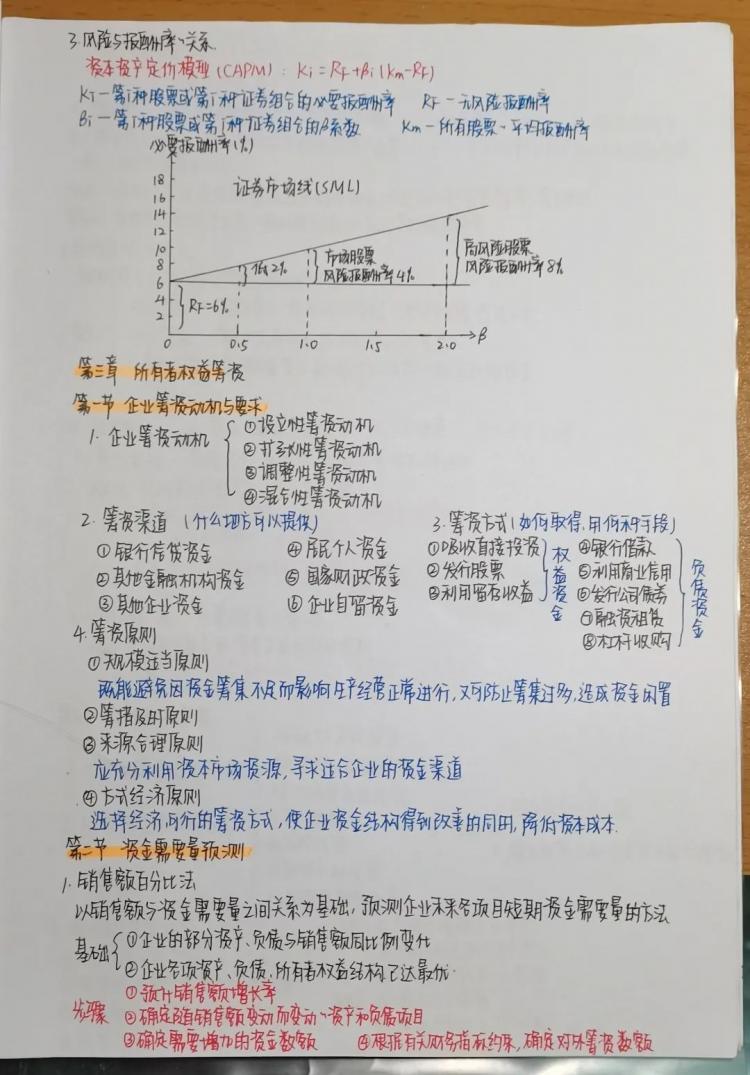 3.风险与报酬率、关系.
资本资产定价模型(CAPM): Ki=RF+βi(Km-RF)
Ki—第i种股票或第i种证券组合的必要报酬率 RF—无风险报酬率
βi—第i种股票或第i种证券组合的β系数 Km—所有股票、平均报酬率
必要报酬率(%)
18
证券市场线(SML)
16
14
12
10
8
6
4
2
低2%
市场股票
风险报酬率4%
高风险股票
风险报酬率8%
RF=6%
0 0.5 1.0 1.5 2.0 β
第三章 所有者权益筹资
第一节 企业筹资动机与要求
1.企业筹资动机
①设立性筹资动机
②扩张性筹资动机
③调整性筹资动机
④混合性筹资动机
2.筹资渠道(什么地方可以提供)
①银行信贷资金 ④居民个人资金
②其他金融机构资金 ⑤国家财政资金
③其他企业资金 ⑥企业自留资金
3.筹资方式(如何取得,用何种手段)
①吸收直接投资
②发行股票
③利用留存收益
权益资金
④银行借款
⑤利用商业信用
⑥发行公司债券
⑦融资租赁
⑧杠杆收购
负债资金
4.筹资原则
①规模适当原则
既能避免因资金筹集不足而影响生产经营正常进行,又可防止筹集过多,造成资金闲置
②筹措及时原则
③来源合理原则
应充分利用资本市场资源,寻求适合企业的资金渠道
④方式经济原则
选择经济、可行的筹资方式,使企业资金结构得到改善的同时,降低资本成本.
第二节 资金需要量预测
1.销售额百分比法
以销售额与资金需要量之间关系为基础,预测企业未来各项目短期资金需要量的方法
基础
①企业的部分资产、负债与销售额同比例变化
②企业各项资产、负债、所有者权益结构已达最优.
步骤
①预计销售额增长率
②确定随销售额变动而变动、资产和负债项目
③确定需要增加的资金数额 ④根据有关财务指标约束,确定对外筹资数额